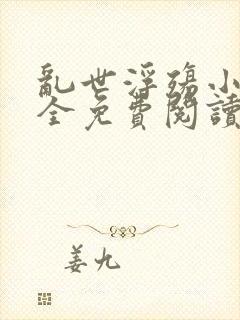 亂世浮殤小
全免費閱讀
姜九